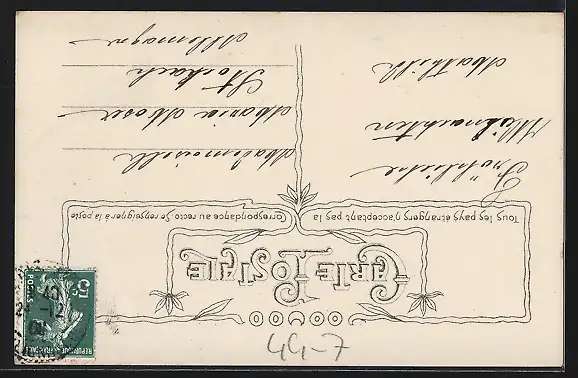 CARTE POSTALE
Tous les pays étrangers n'acceptant pas la
Correspondance au recto. Se renseigner à la poste
Fröhliche
Weihnachten
Mathild
Mademoiselle
Maria Moser
Stockach
Allemagne
5
5c
POSTES
REPUBLIQUE FRANÇAISE
44-7